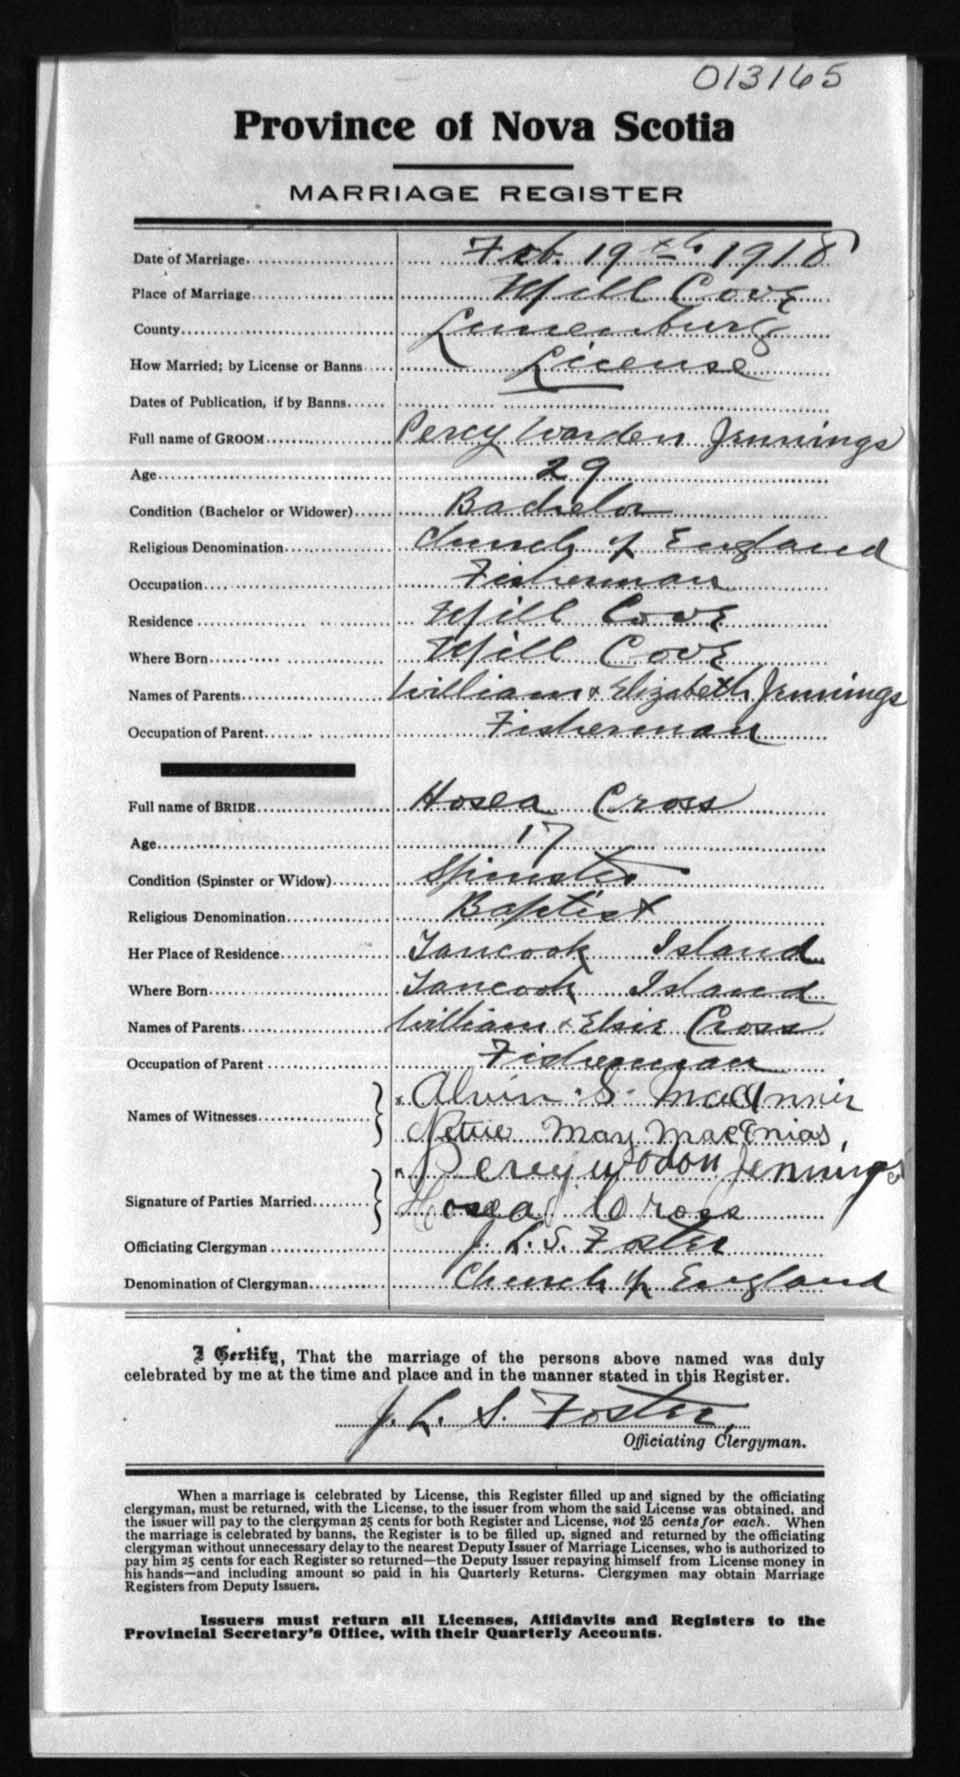 013165
Province of Nova Scotia
MARRIAGE REGISTER
Date of Marriage Feb. 19th. 1918
Place of Marriage Mill Cove
County Lunenburg
How Married; by License or Banns License
Dates of Publication, if by Banns
Full name of GROOM Percy Warden Jennings
Age 29
Condition (Bachelor or Widower) Bachelor
Religious Denomination Church of England
Occupation Fisherman
Residence Mill Cove
Where Born Mill Cove
Names of Parents William & Elizabeth Jennings
Occupation of Parent Fisherman
Full name of BRIDE Hosea Cross
Age 17
Condition (Spinster or Widow) Spinster
Religious Denomination Baptist
Her Place of Residence Tancook Island
Where Born Tancook Island
Names of Parents William & Elsie Cross
Occupation of Parent Fisherman
Alvin S.
Names of Witnesses
Nettie May
Percy Jennings
Signature of Parties Married
Hosea Cross
Officiating Clergyman J. L. S. Foster
Denomination of Clergyman Church of England
I Certify, That the marriage of the persons above named was duly
celebrated by me at the time and place and in the manner stated in this Register.
J. L. S. Foster,
Officiating Clergyman.
When a marriage is celebrated by License, this Register filled up and signed by the officiating
clergyman, must be returned, with the License, to the issuer from whom the said License was obtained, and
the issuer will pay to the clergyman 25 cents for both Register and License, not 25 cents for each. When
the marriage is celebrated by banns, the Register is to be filled up, signed and returned by the officiating
clergyman without unnecessary delay to the nearest Deputy Issuer of Marriage Licenses, who is authorized to
pay him 25 cents for each Register so returned—the Deputy Issuer repaying himself from License money in
his hands—and including amount so paid in his Quarterly Returns. Clergymen may obtain Marriage
Registers from Deputy Issuers.
Issuers must return all Licenses, Affidavits and Registers to the
Provincial Secretary's Office, with their Quarterly Accounts.